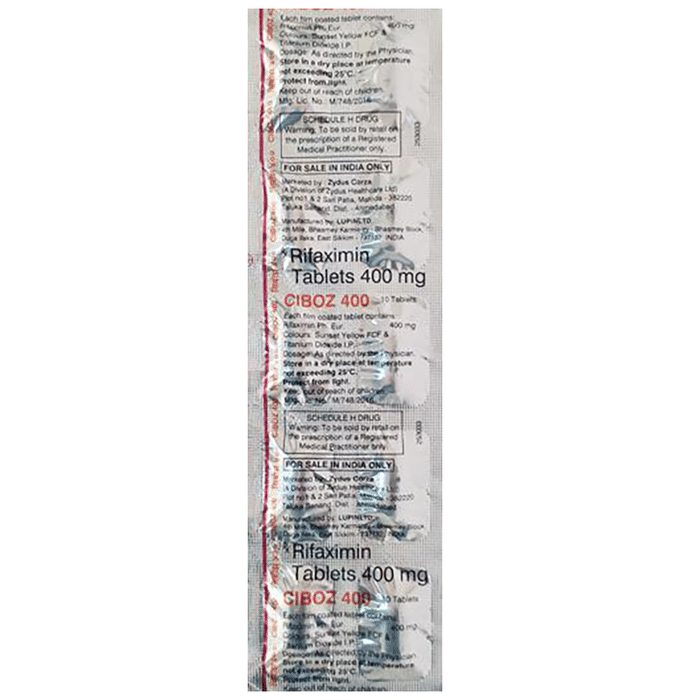 Each film coated tablet contains:
Rifaximin Ph. Eur. 400 mg
Colours: Sunset Yellow FCF &
Titanium Dioxide I.P.
Dosage: As directed by the Physician.
Store in a dry place at temperature
not exceeding 25°C.
Protect from light.
Keep out of reach of children.
Mfg. Lic. No.: M/748/2016
SCHEDULE H DRUG
Warning: To be sold by retail on
the prescription of a Registered
Medical Practitioner only.
253033
FOR SALE IN INDIA ONLY
Marketed by: Zydus Corza
(A Division of Zydus Healthcare Ltd)
Plot no1 & 2 Sari Patia, Matoda - 382220
Taluka Sanand, Dist. - Ahmedabad
Manufactured by: LUPIN LTD.
Mile, Bhasmey Karmarey - Bhasmey Block,
Duga Ilaka, East Sikkim - 737132 INDIA
Rifaximin
Tablets 400 mg
CIBOZ 400 10 Tablets
Each film coated tablet contains
Rifaximin Ph. Eur. 400 mg
Colours: Sunset Yellow FCF &
Titanium Dioxide I.P.
Dosage: As directed by the Physician.
Store in a dry place at temperature
not exceeding 25°C.
Protect from light.
Keep out of reach of children
Mfg. Lic. No.: M/748/2016
SCHEDULE H DRUG
Warning: To be sold by retail on
the prescription of a Registered
Medical Practitioner only
253033
FOR SALE IN INDIA ONLY
Marketed by: Zydus Corza
(A Division of Zydus Healthcare Ltd)
Plot no1 & 2 Sari Patia, Matoda - 382220
Taluka Sanand, Dist. - Ahmedabad
Manufactured by: LUPIN LTD.
Mile, Bhasmey Karmarey - Bhasmey Block,
Duga Ilaka, East Sikkim - 737132 INDIA
Rifaximin
Tablets 400 mg
CIBOZ 400 10 Tablets
Each film coated tablet contains
Rifaximin Ph. Eur. 400 mg
Colours: Sunset Yellow FCF &
Titanium Dioxide I.P.
Dosage: As directed by the Physician.
Store in a dry place at temperature
not exceeding 25°C.
Protect from light.
Keep out of reach of children